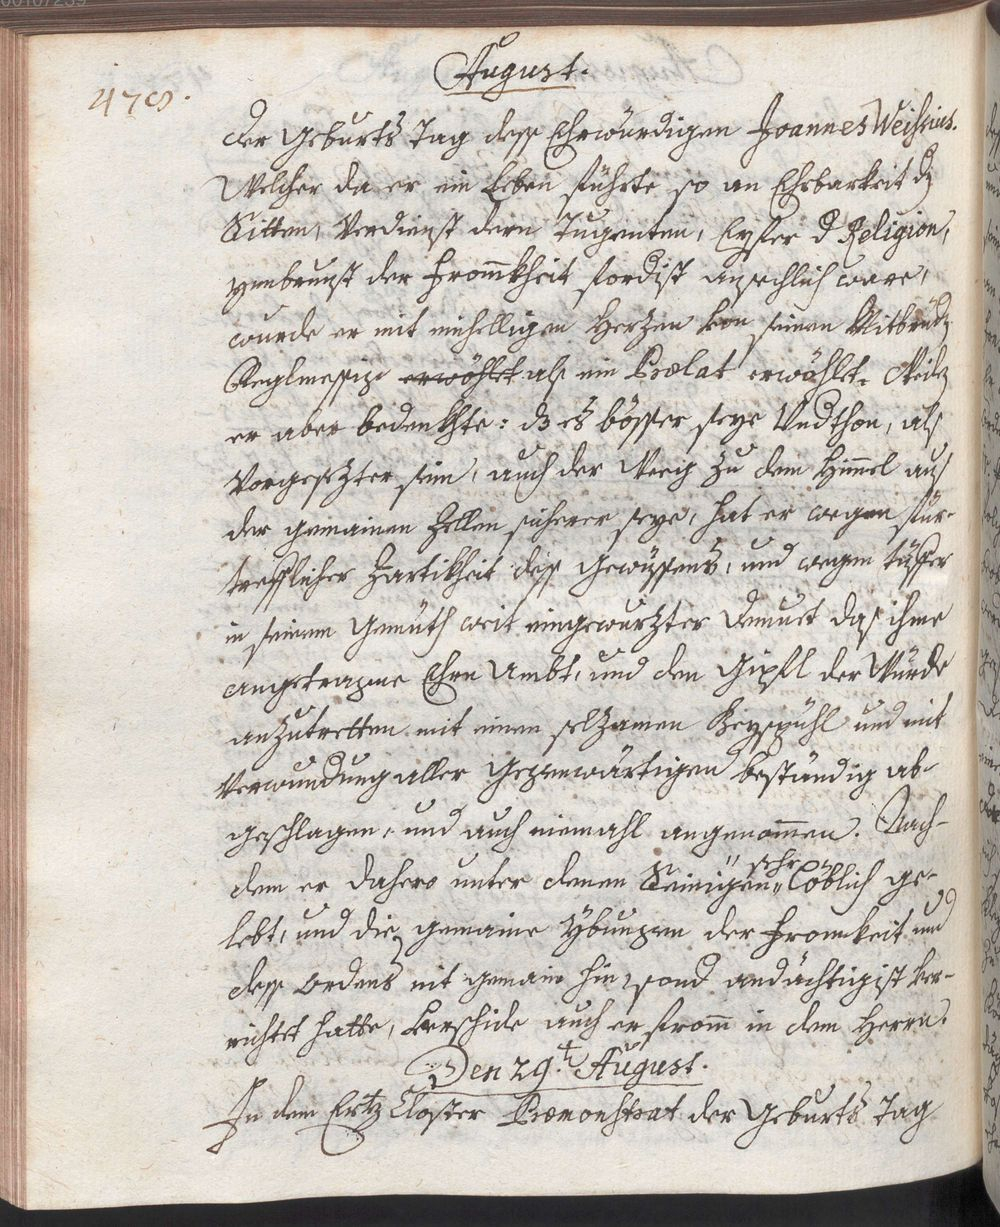 August.
478.
der Geburts Tag dess Ehrwürdigen Joannes Weissius.
Welcher da er ein Leben führte so an Ehrbarkeit d
Sitten, Verdienst dern Tugenten, Eyfer d Religion,
ynbrunst der Frommkheit fordist ansechlich ware,
wurde er mit einhelligen Herzen von seinen Mitbrüd
erwöhlet als ein Prælat erwöhlt. Weilen
er aber bedenkhte: dz es bösser seye Undthon, als
Vorgesezter sein, auch der Weeg zu dem Himmel aus
der gemainen Zellen sicherer seye, hat er wegen für-
trefflicher Zartikheit dess Gewüssens, und wegen tüffer
in seinem Gemüth weit eingewurzter Demuet das ihme
angetragne Ehrn Ambt, und den Gipfl der Würde
anzutretten mit einen selzamen Beyspühl und mit
Verwundung aller Gegenwärtigen beständig ab-
geschlagen, und auch niemahl angenommen. Nach-
dem er dahero unter denen Seinigen sehr löblich ge-
lebt, und die gemaine Ybungen der Fromkeit und
dess Ordens nit gemain hin, sond andächtigist ver-
richtet hatte, verschide auch er fromm in dem Herrn.
Den 29.t August.
In dem Ertz Closter Præmonstrat der Geburts Tag